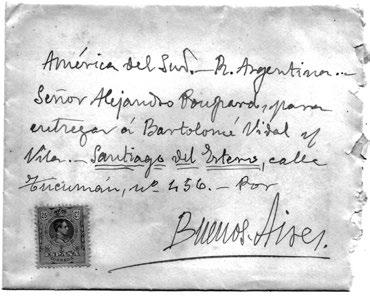 América del Sud.- R. Argentina.-
Señor Alejandro Poupard, para
entregar á Bartolomé Vidal y
Vila.- Santiago del Estero, calle
Tucumán, nº 456.- Por
Buenos-Aires.
ESPAÑA